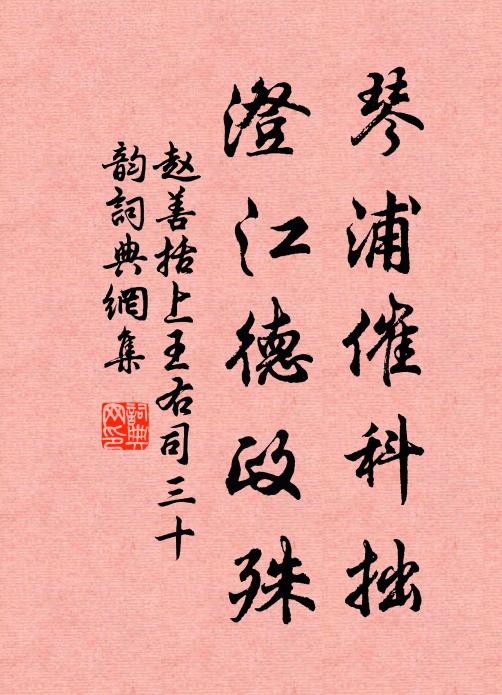 琴浦催科拙
澄江德政殊
赵善括上王右司三十
韵詞典網集
詞典网印